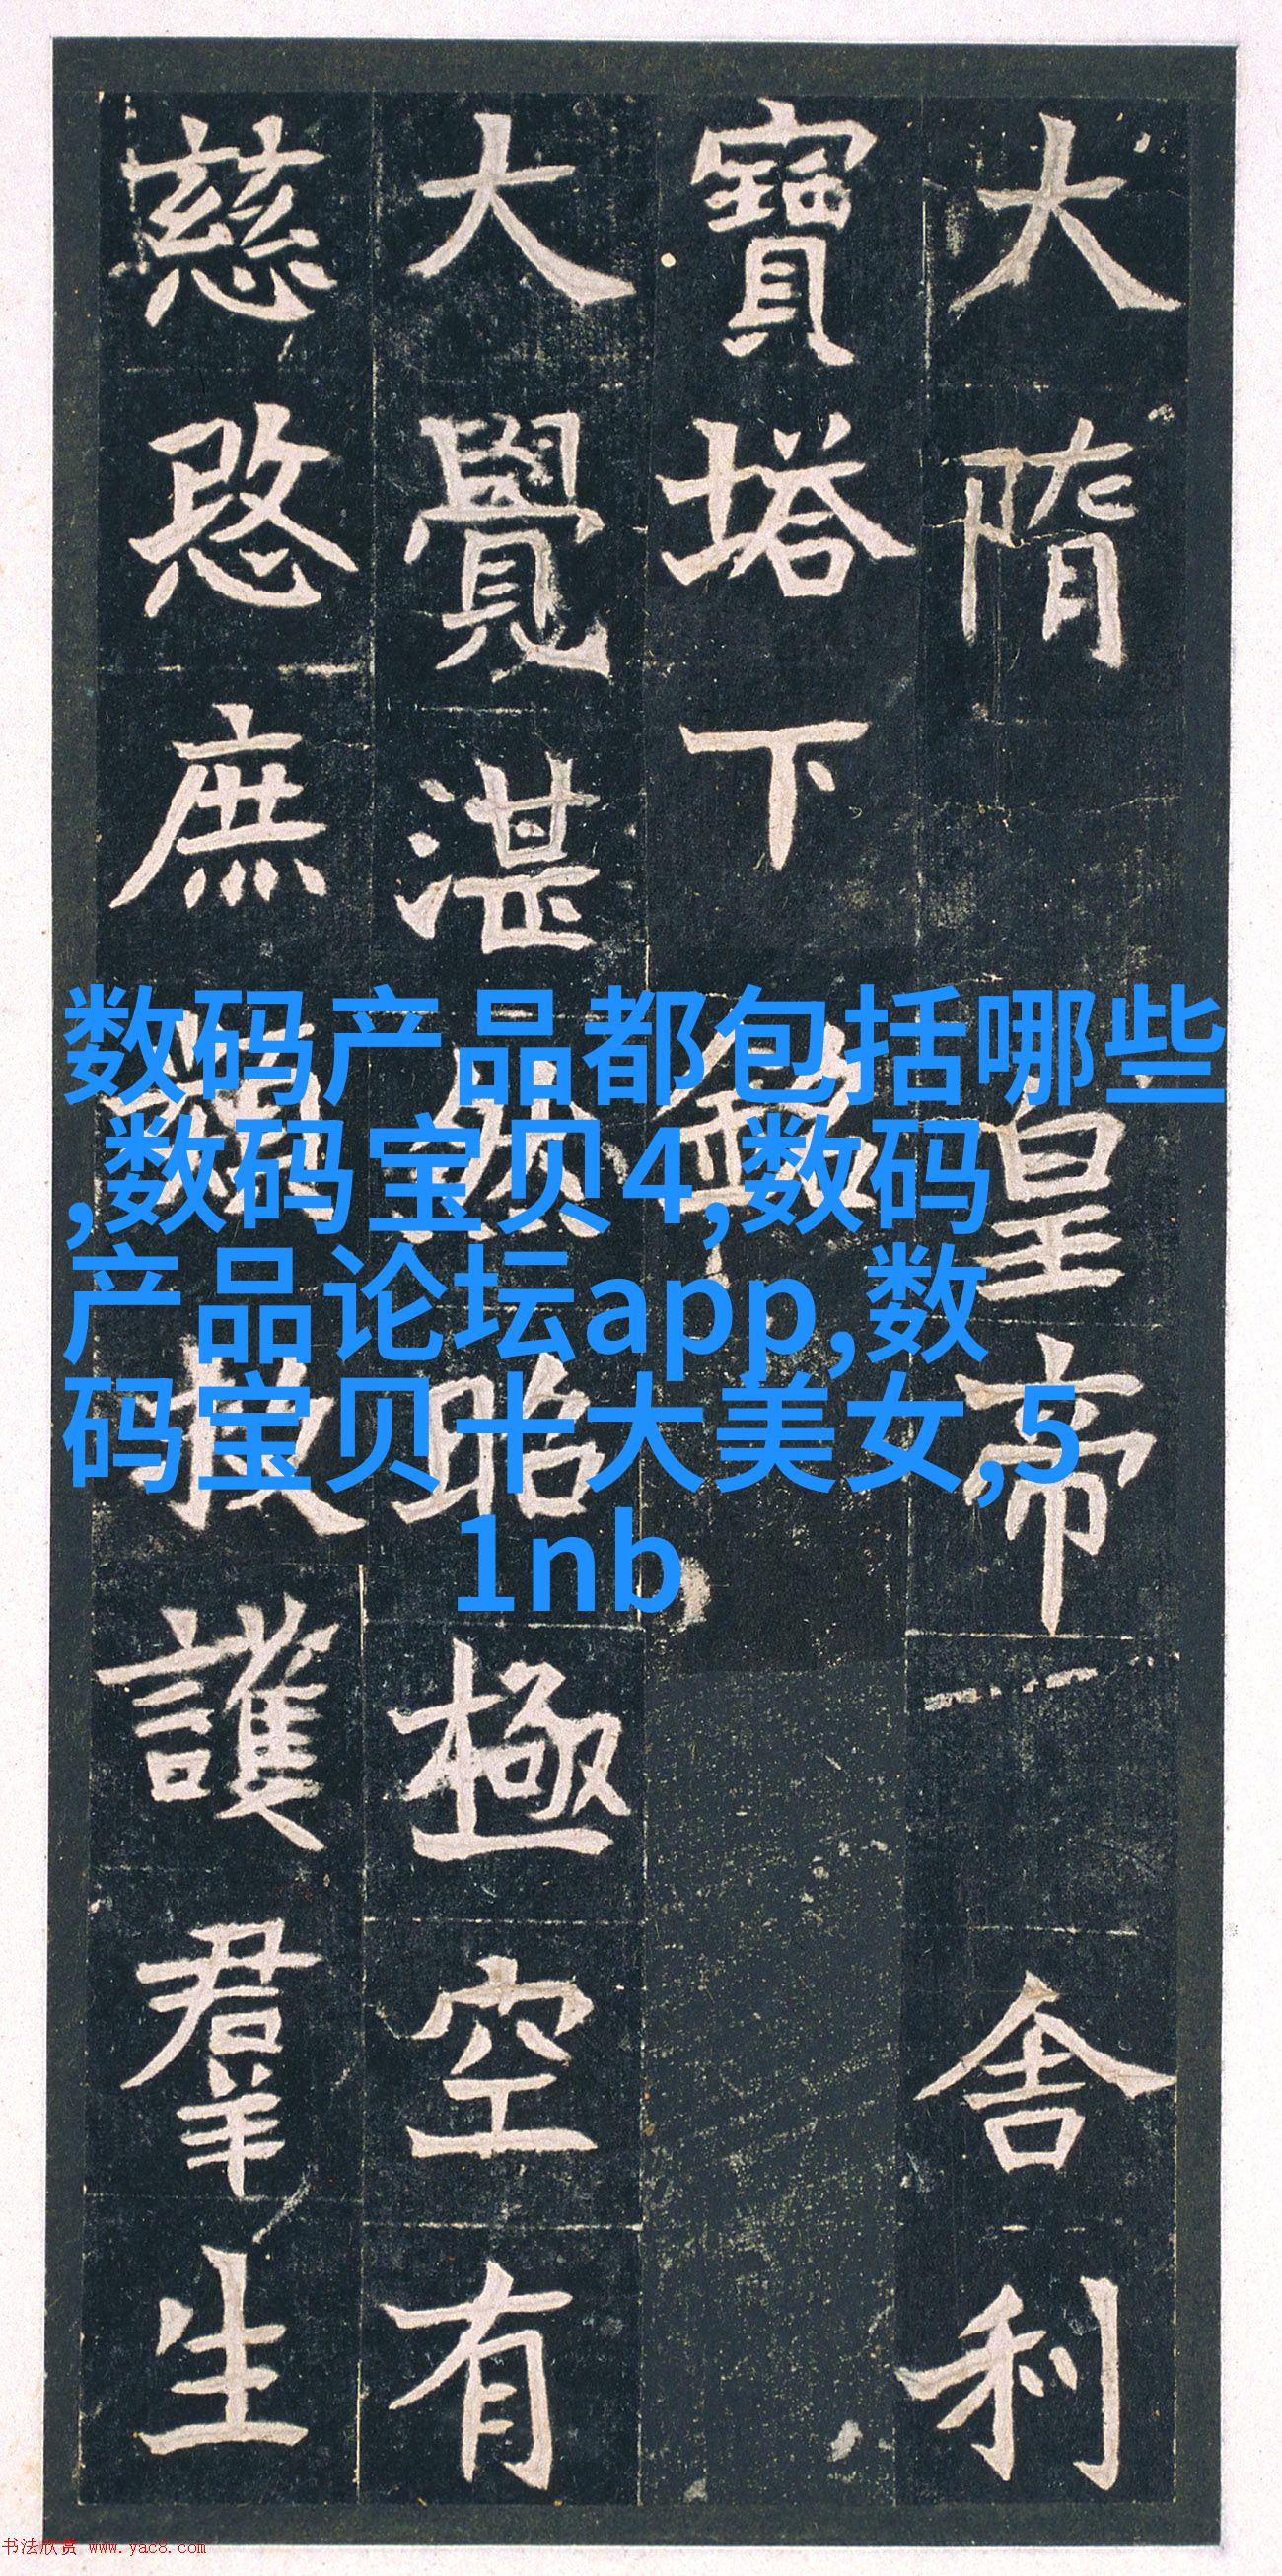 大隋皇帝舍利
寶塔下銘
大覺湛然昭極空有
慈愍庶護羣生
数码产品都包括哪些
,数码宝贝4,数码
产品论坛app,数
码宝贝十大美女,5
1nb
书法欣赏 www.yac8.com